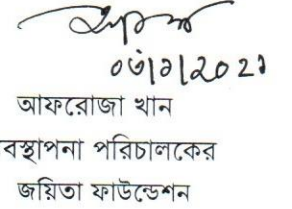 ০৬/৯/২০২১
আফরোজা খান
বস্থাপনা পরিচালকের
জয়িতা ফাউন্ডেশন